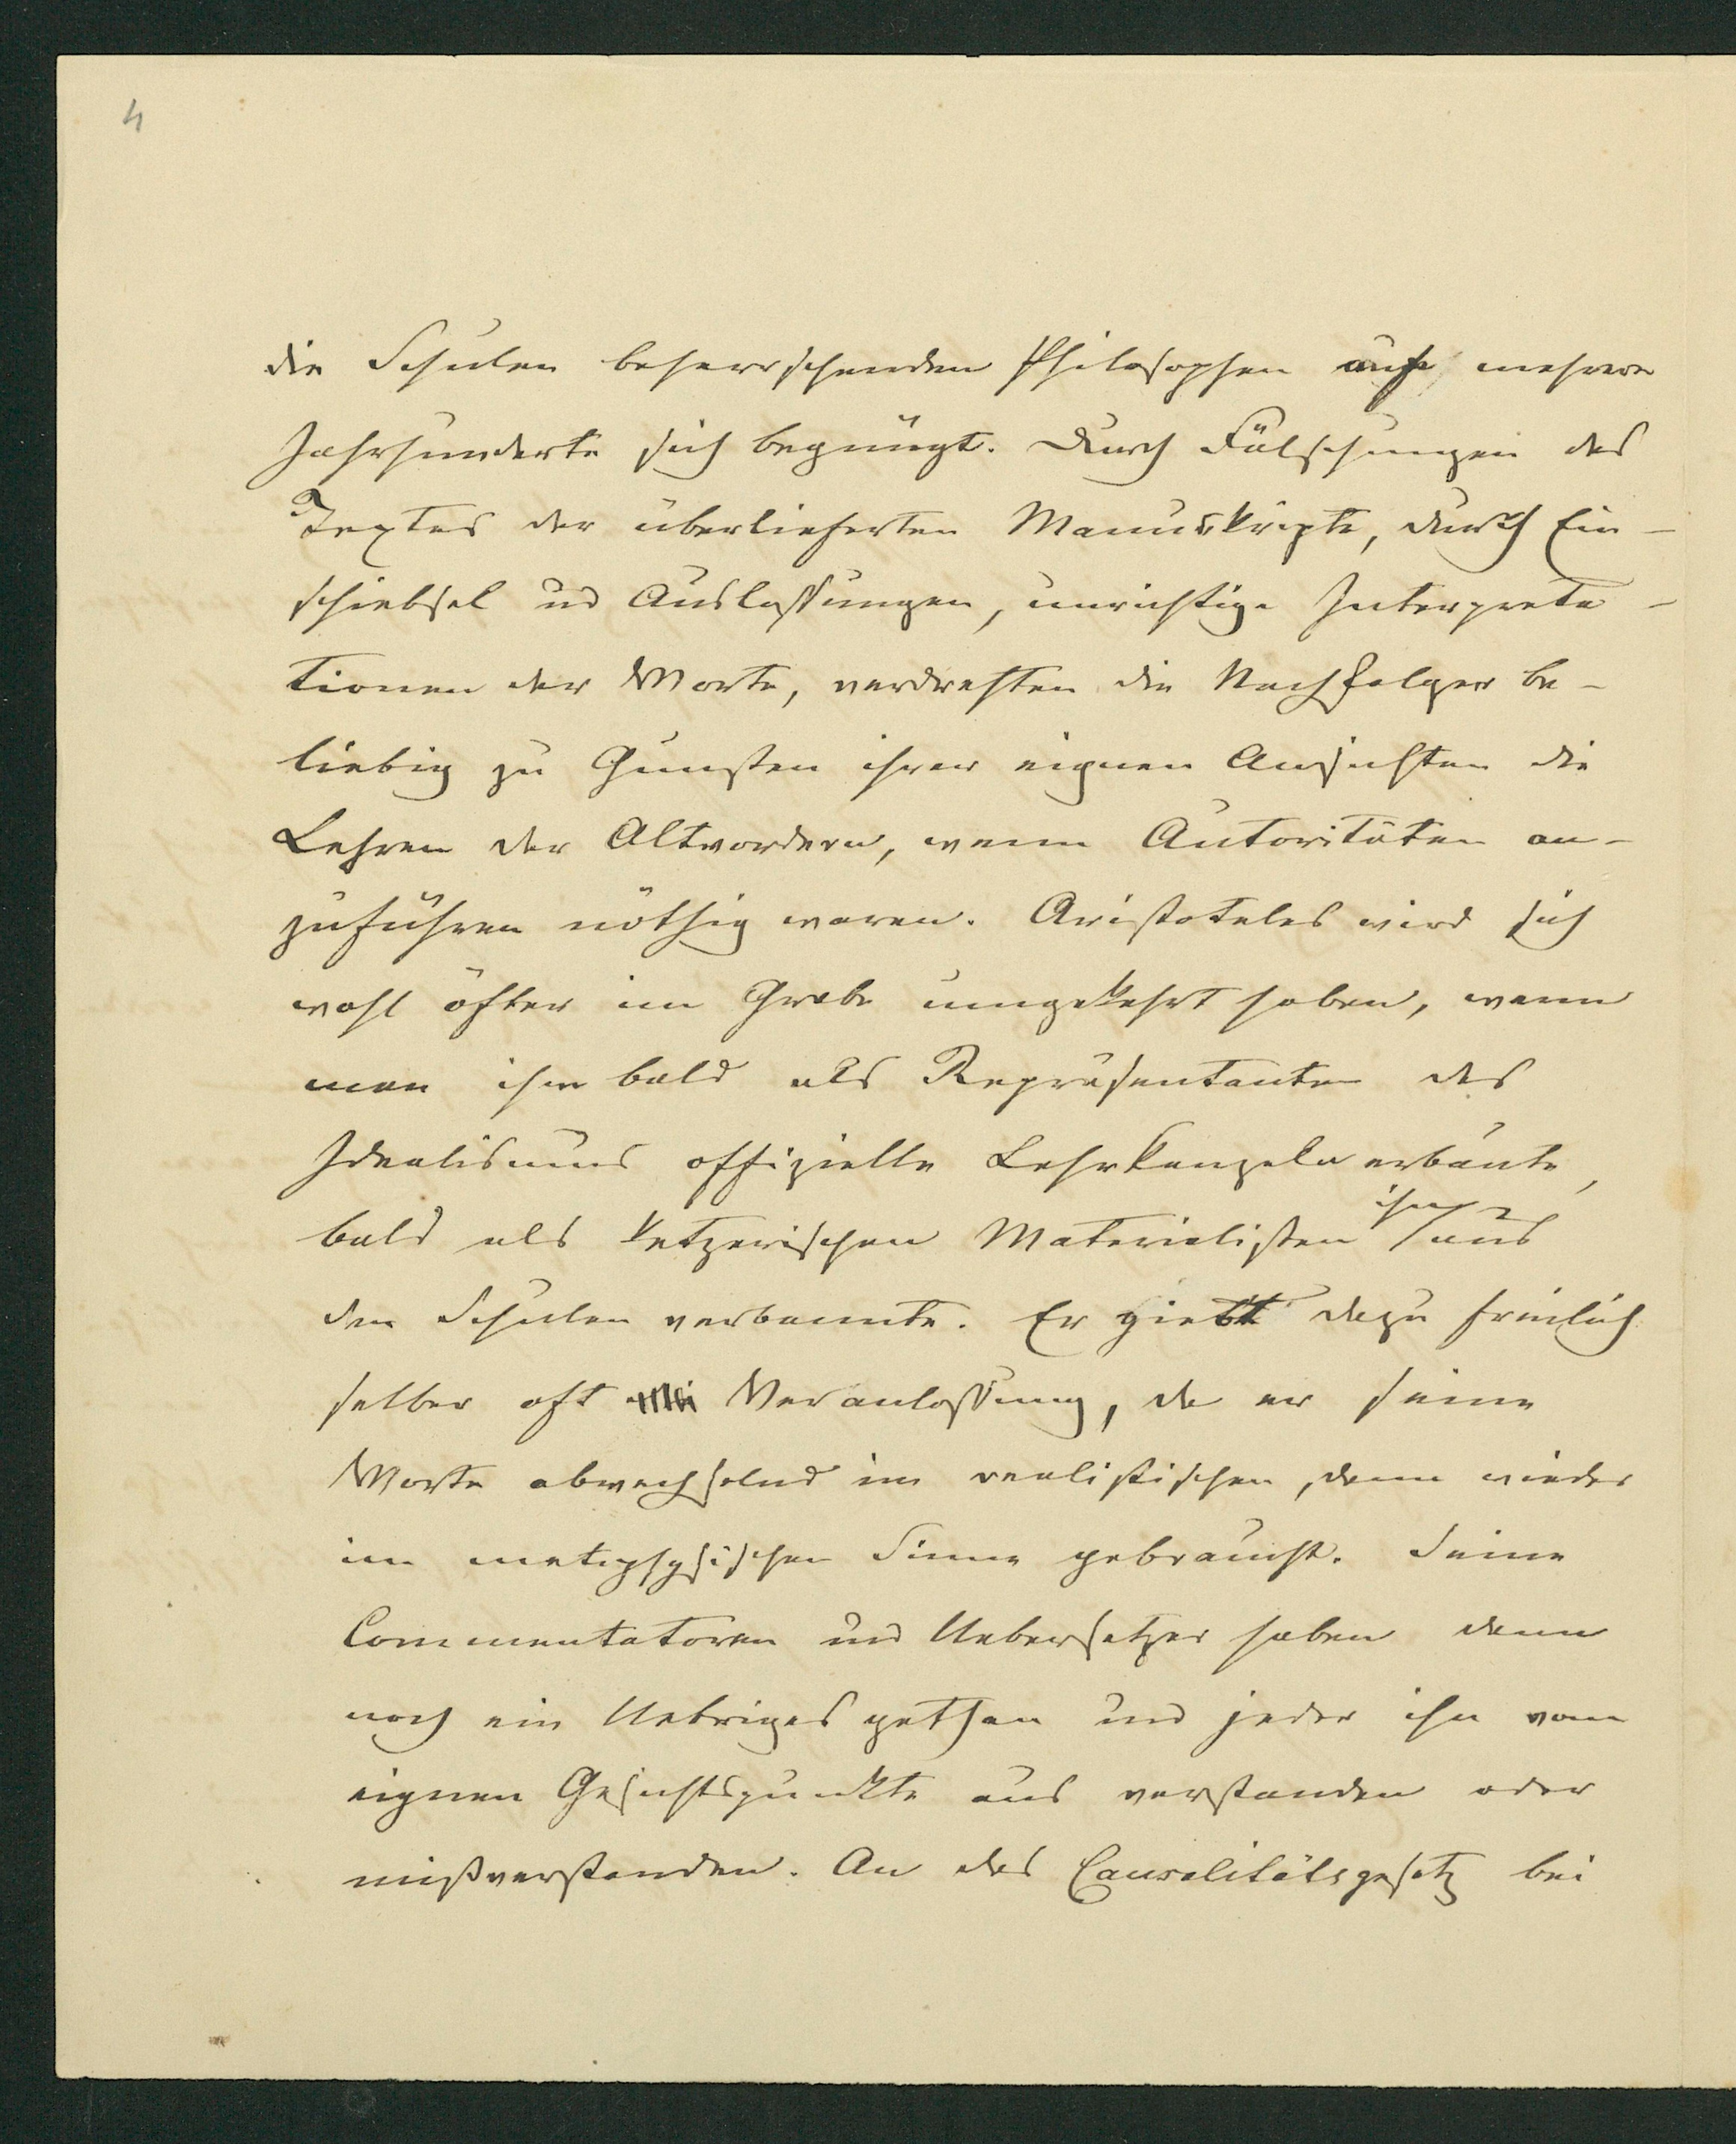 4
die Schulen beherrschenden Philosophen auf mehrere
Jahrhunderte sich begnügt. Durch Fälschungen des
Textes der überlieferten Manuskripte, durch Ein-
schiebsel und Auslassungen, unrichtige Interpreta-
tionen der Worte, verdrehten die Nachfolger be-
liebig zu Gunsten ihrer eignen Ansichten die
Lehren der Altvordern, wenn Autoritäten an-
zuführen nöthig waren. Aristoteles wird sich
wohl öfter im Grabe umgekehrt haben, wenn
man ihm bald als Repräsentanten des
Idealismus offizielle Lehrkanzeln erbaute,
bald als ketzerischen Materialisten ihn aus
den Schulen verbannte. Er giebt dazu freilich
selber oft Veranlassung, da er seine
Worte abwechselnd im realistischen, dann wieder
im metaphysischen Sinne gebraucht. Seine
Commentatoren und Uebersetzer haben dann
noch ein Uebriges gethan und jeder ihn vom
eignen Gesichtspunkte aus verstanden oder
mißverstanden. An das Causalitätsgesetz bei